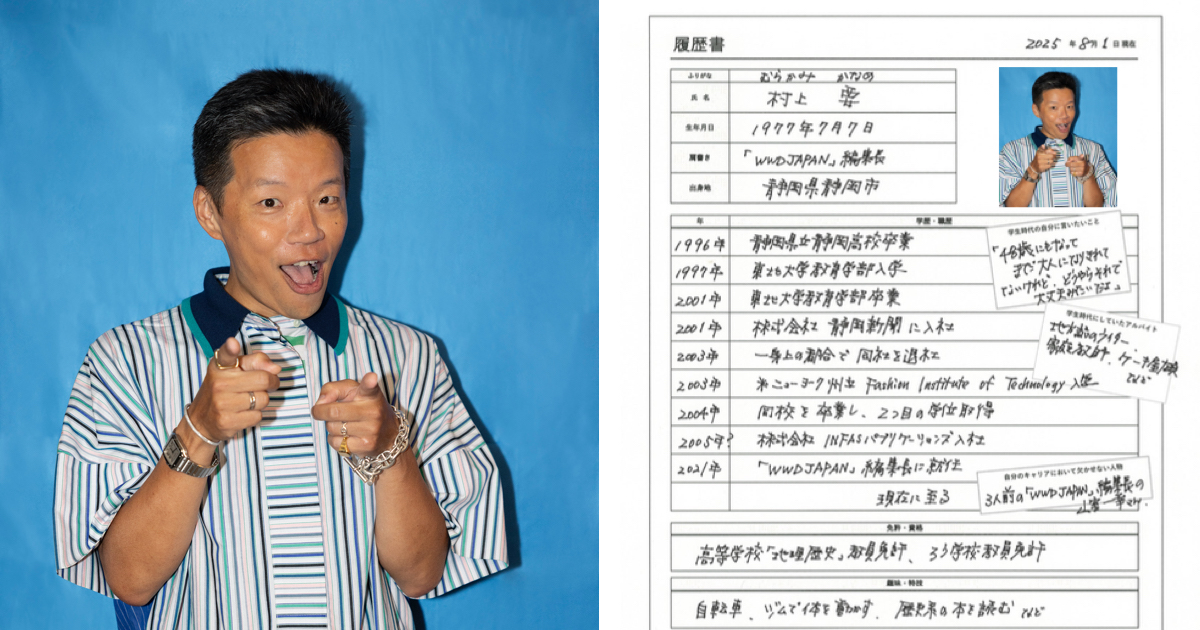 履歴書
2025 年 8月 1 日現在
ふりがな むらかみ かなめ
氏 名 村上 要
生年月日 1977年7月7日
肩書き 「WWDJAPAN」編集長
出身地 静岡県静岡市
年 学歴・職歴
1996年 静岡県立静岡高校卒業
1997年 東北大学教育学部入学
2001年 東北大学教育学部卒業
2001年 株式会社 静岡新聞に入社
2003年 一身上の都合で同社を退社
2003年 米ニューヨーク州立 Fashion Institute of Technology 入学
2004年 同校を卒業し、2つ目の学位取得
2005年? 株式会社INFASパブリケーションズ入社
2021年 「WWDJAPAN」編集長に就任
現在に至る
学生時代の自分に言いたいこと
「48歳にもなって
まだ大人になりきれて
ないけれど、どうやらそれで
大丈夫みたいだよ」
学生時代にしていたアルバイト
地方紙のライター、
家庭教師、ケーキ屋
など
自分のキャリアにおいて欠かせない人物
3人前の「WWDJAPAN」編集長の
山室一幸さん
免許・資格
高等学校「地理歴史」教員免許、ろう学校教員免許
趣味・特技
自転車、ジムで体を動かす、歴史系の本を読む など